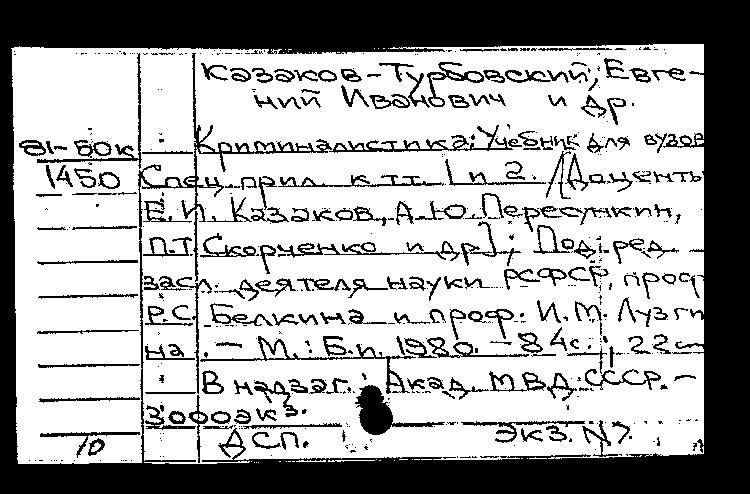 Казаков-Турбовский, Евге-
ний Иванович и др.
81-50к Криминалистика: Учебник для вузов
1450 Спец. прил. к тт. 1 и 2. /[Доценты
Е.И. Казаков, А.Ю. Пересункин,
П.Т. Скорченко и др]; Под ред.
засл. деятеля науки РСФСР, проф
Р.С. Белкина и проф. И.М. Лузги
на. - М.: Б.и, 1980. - 84с.; 22см
В надзаг.: Акад. МВД СССР. -
3000экз.
10 ДСП. Экз. N7.